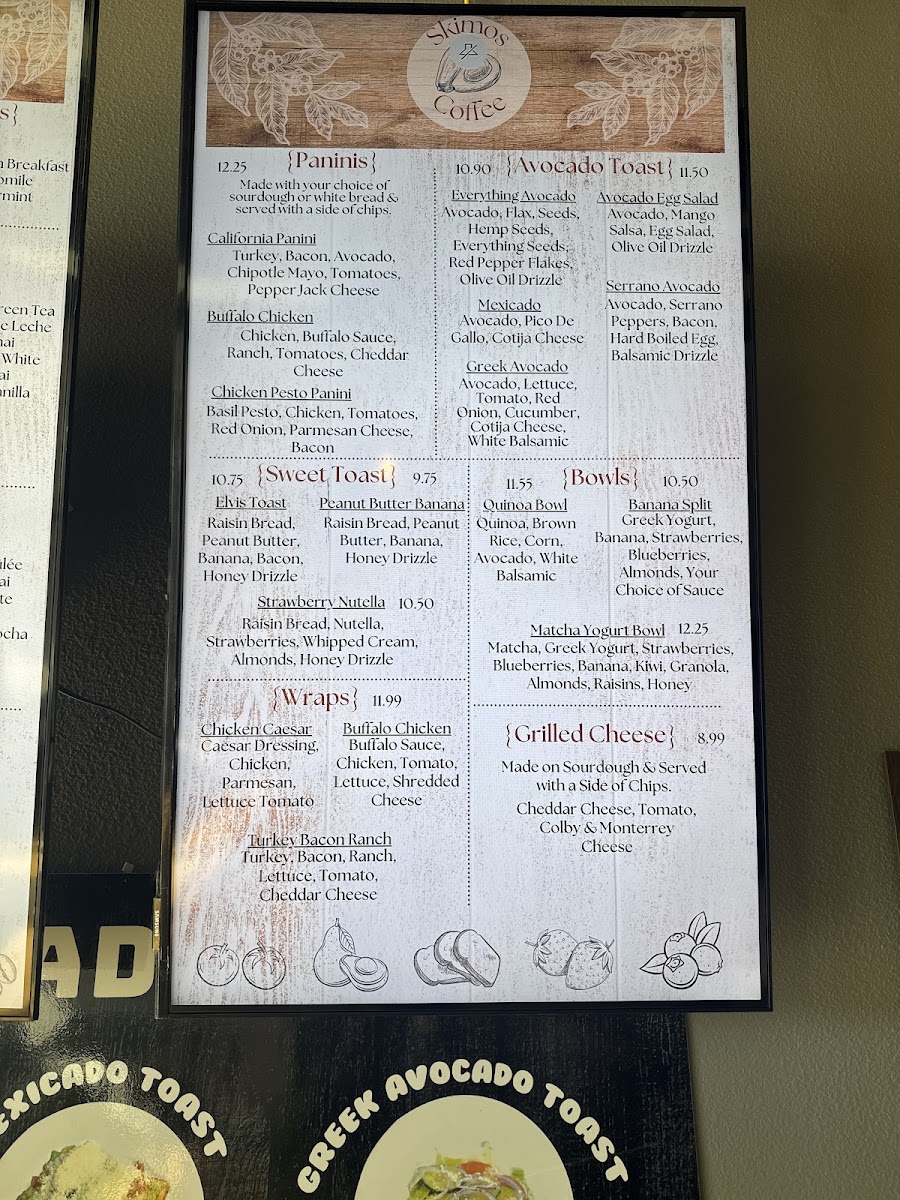 Skimos
Coffee
12.25 {Paninis}
Made with your choice of
sourdough or white bread &
served with a side of chips.
California Panini
Turkey, Bacon, Avocado,
Chipotle Mayo, Tomatoes,
Pepper Jack Cheese
Buffalo Chicken
Chicken, Buffalo Sauce,
Ranch, Tomatoes, Cheddar
Cheese
Chicken Pesto Panini
Basil Pesto, Chicken, Tomatoes,
Red Onion, Parmesan Cheese,
Bacon
10.90 {Avocado Toast} 11.50
Everything Avocado
Avocado, Flax, Seeds,
Hemp Seeds,
Everything Seeds,
Red Pepper Flakes,
Olive Oil Drizzle
Mexicado
Avocado, Pico De
Gallo, Cotija Cheese
Greek Avocado
Avocado, Lettuce,
Tomato, Red
Onion, Cucumber,
Cotija Cheese,
White Balsamic
Avocado Egg Salad
Avocado, Mango
Salsa, Egg Salad,
Olive Oil Drizzle
Serrano Avocado
Avocado, Serrano
Peppers, Bacon,
Hard Boiled Egg,
Balsamic Drizzle
10.75 {Sweet Toast} 9.75
Elvis Toast
Raisin Bread,
Peanut Butter,
Banana, Bacon,
Honey Drizzle
Peanut Butter Banana
Raisin Bread, Peanut
Butter, Banana,
Honey Drizzle
Strawberry Nutella 10.50
Raisin Bread, Nutella,
Strawberries, Whipped Cream,
Almonds, Honey Drizzle
11.55 {Bowls} 10.50
Quinoa Bowl
Quinoa, Brown
Rice, Corn,
Avocado, White
Balsamic
Banana Split
Greek Yogurt,
Banana, Strawberries,
Blueberries,
Almonds, Your
Choice of Sauce
Matcha Yogurt Bowl 12.25
Matcha, Greek Yogurt, Strawberries,
Blueberries, Banana, Kiwi, Granola,
Almonds, Raisins, Honey
{Wraps} 11.99
Chicken Caesar
Caesar Dressing,
Chicken,
Parmesan,
Lettuce Tomato
Buffalo Chicken
Buffalo Sauce,
Chicken, Tomato,
Lettuce, Shredded
Cheese
Turkey Bacon Ranch
Turkey, Bacon, Ranch,
Lettuce, Tomato,
Cheddar Cheese
{Grilled Cheese} 8.99
Made on Sourdough & Served
with a Side of Chips.
Cheddar Cheese, Tomato,
Colby & Monterrey
Cheese
Breakfast
reen Tea
Leche
White
AD
EXICADO TOAST
GREEK AVOCADO TOAST